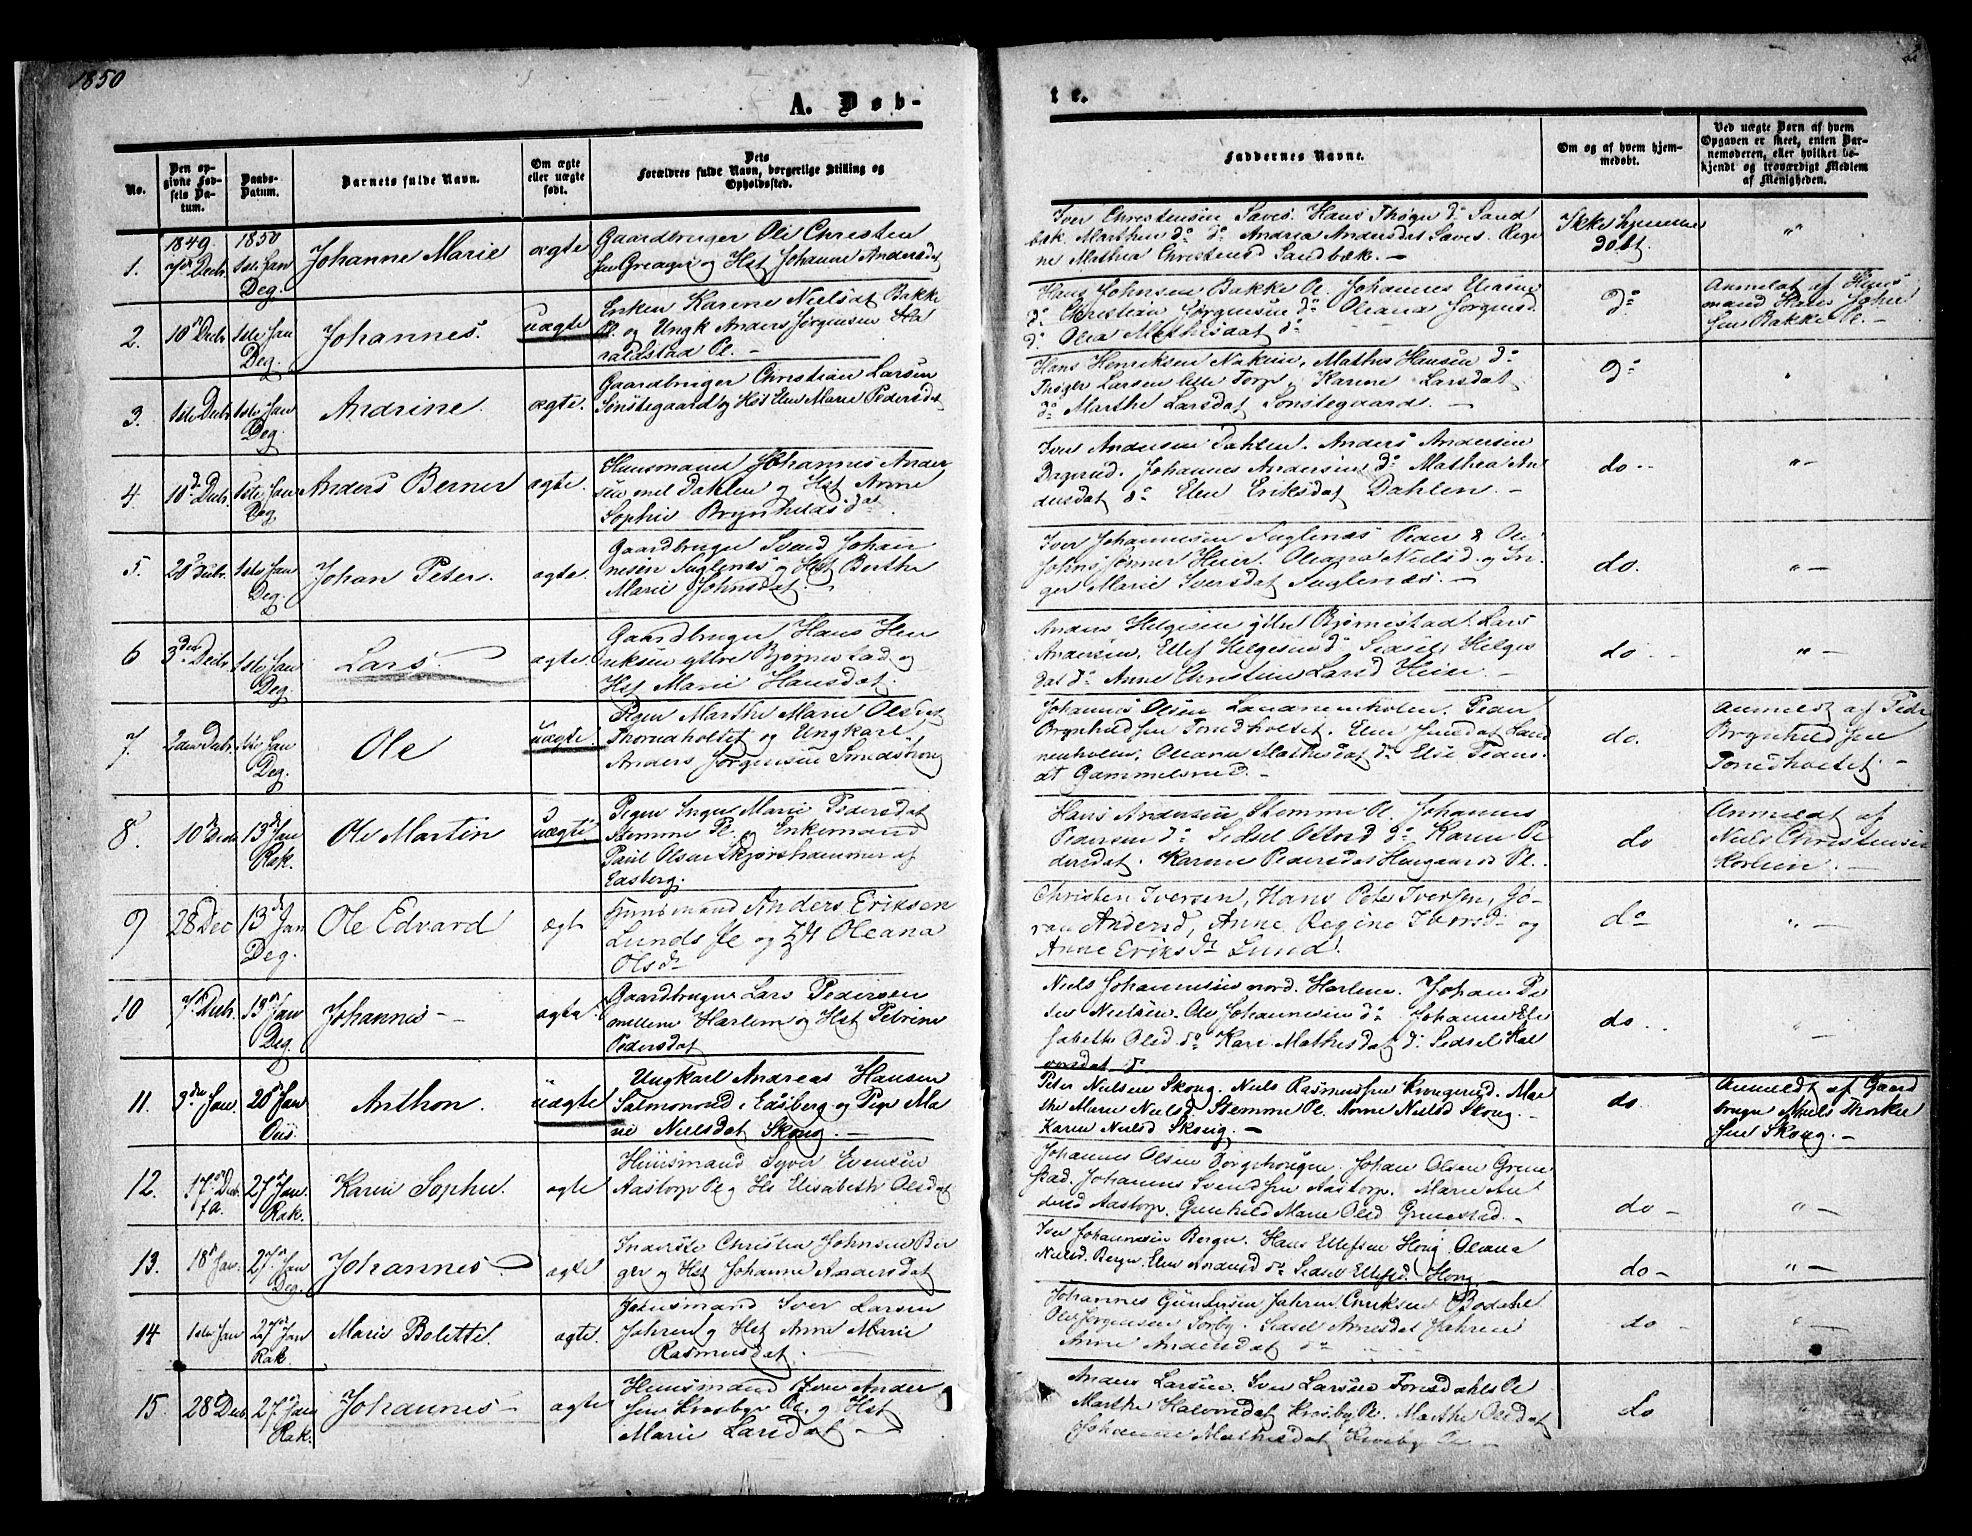 1850
A. Døb-
te.
2
No.
Den op-
givne Fød-
sels Da-
tum.
Daabs-
Datum.
Barnets fulde Navn.
Om ægte
eller uægte
født.
Dets
Forældres fulde Navn, borgerlige Stilling og
Opholdssted.
Faddernes Navne.
Om og af hvem hjem-
medøbt.
Ved uægte Børn af hvem
Opgaven er skeet, enten Bar-
nemoderen, eller hvilket be-
kjendt og troværdigt Medlem
af Menigheden.
1849
1850
1.
7de Decbr
1ste Jan
Deg.
Johanne Marie
ægte
Gaardbruger Ole Christen
sen Greager og Hst Johanne Andersdat
Iver Christensen Saves. Hans Thøger do Sand
bæk. Marthea do do Andrea Andersdat Saves. Regi
ne Mathea Christensd Sandbæk. —
Ikke hjemme
døbt.
" —
2.
10de Decbr
1ste Jan
Deg.
Johannes.
uægte
Enken Karene Nielsdat Bakke
Pl. og Ungk Anders Jørgensen Ha
raldstad Pl. —
Hans Johnsen Bakke Pl. Johannes Eliasen
do Christian Jørgensen do Oleana Jørgensd.
do Olea Mathisdat do
do
Anmeldt af Huus
mand Hans John
sen Bakke Pl. —
3.
1ste Decbr
1ste Jan
Deg.
Andrine.
ægte.
Gaardbruger Christian Larsen
Sønstegaard og Hst Elen Marie Pedersdat
Hans Henriksen Nakim, Mathis Hansen do
Thøger Larsen lille Torp, Karine Larsdat
do Marthe Larsdat Sønstegaard. —
do
4.
10de Decbr
1ste Jan
Deg.
Anders Berner
ægte.
Huusmand Johannes Ander
sen mel Dahlen og Hst Anne
Sophie Brynhildsdat.
Iver Andersen Dahlen. Anders Andersen
Dagerud. Johannes Andersen do Mathea An
dersdat do Elen Eriksdat Dahlen. —
do. -
" —
5.
20de Decbr.
1ste Jan
Deg.
Johan Peter.
ægte.
Gaardbruger Svend Johan
nesen Fuglenæs og Hst Berthe
Marie Johnsdat. —
Iver Johannesen Fuglenæs Peder & Ole
Johnssønner Heier. Oleana Nielsd. og In
ger Marie Iversdat Fuglenæs. —
do.
" —
6
3die Decbr
1ste Jan
Deg.
Lars.
ægte.
Gaardbruger Hans Hen
riksen ytre Bjørnestad og
Hst Marie Hansdat.
Anders Helgesen ytre Bjørnestad. Lars
Andersen, Ellef Helgesen do Sidsel Helges
dat do Anne Christine Larsd Heier. —
do -
" —
7.
2den Decbr.
1ste Jan
Deg.
Ole
uægte
Pigen Marthe Marie Olsdat
Thorndholtet og Ungkarl
Anders Jørgensen Smedshoug
Johannes Olsen Landnenholen. Peder
Brynhildsen Torndholtet. Elen Jensdat Land
nenholen, Oleana Mathisdat do Else Peders
dat Gammelsrud. —
do.
Anmeldt af Peder
Brynhildsen
Torndholtet. —
8.
10de Decbr
13de Jan
Rak.
Ole Martin
uægte
Pigen Inger Marie Pedersdat
Stemme Pl. og Enkemand
Paul Olsen Skjørshammer af
Edsberg.
Hans Andersen Stemme Pl. Johannes
Pedersen do Sidsel Olsd do Karen Pe
dersdat. Karine Pedersdat Huugaard Pl.
do
Anmeldt af
Niels Christensen
Korlein. —
9
28 Dec
13de Jan
Deg.
Ole Edvard
ægt
Huusmand Anders Eriksen
Lunds Ple og Hst Oleana
Olsdr
Christen Iversen, Hans Peter Iversen, Gø-
ran Andersd, Anne Regine Iversdr og
Anne Eriksdr Lund.
do
" —
10
7de Decbr.
13de Jan
Deg.
Johannes —
ægte.
Gaardbruger Lars Pedersen
mellem Harlem og Hst Petrine
Pedersdat
Niels Johannesen nord. Harlem. Johan Pe
ter Nielsen. Ole Johannesen do Johanne Eli
sabeth Olsd do Kari Mathisdat do Sidsel Hal
vorsdat do
do. .
11.
3die Jan
20de Jan
Ons
Anthon.
uægte
Ungkarl Andreas Hansen
Salmonrud i Edsberg og Pige Ma
rie Nielsdat Skoug. —
Peter Nielsen Skoug. Niels Rasmussen Krongerud. Mar
the Marie Nielsd. Stemme Pl. Anne Nielsd Skoug. —
Karen Nielsd Skoug. —
do.
Anmeldt af Gaard
bruger Niels Thorker
sen Skoug. —
12.
17de Decbr.
f.a.
27de Jan.
Rak.
Karen Sophie.
ægte
Huusmand Syver Evensen
Aastorp Pl. og Hst Elisabeth Olsdat
Johannes Olsen Børgehougen. Johan Olsen Grene
stad. Johannes Svendsen Aastorp. Marie An
dersd Aastorp. Gunhild Marie Olsd Grenestad. —
do —
" —
13.
18de Jan.
27de Jan
Deg.
Johannes.
ægte
Inderste Christen Johnsen Ber
ger og Hst Johanne Andersdat
Iver Johannesen Berger. Hans Ellefsen Houg. Oleana
Nielsd. Berger. Elen Andersd do Sidsel Ellefsd. Houg. —
do —
" —
14
1ste Jan
27de Jan
Rak.
Marie Bolette.
ægte.
Huusmand Iver Larsen
Jahren og Hst Anne Marie
Rasmusdat. —
Johannes Gundersen Jahren. Bodahl
Ole Jørgensen Sørby. Sidsel Arnesdat Jahren
Anne Andersdat do
do —
15
28 Decbr
27de Jan
Rak.
Johannes —
ægte
Huusmand Iver Ander
sen Krosby Pl. og Hst
Marie Larsdat —
Anders Larsen. Iver Larsen Tonsdahls Pl
Marthe Halvorsdat Krosby Pl. Marthe Olsdat
Johanne Mathisdat Krosby Pl —
do